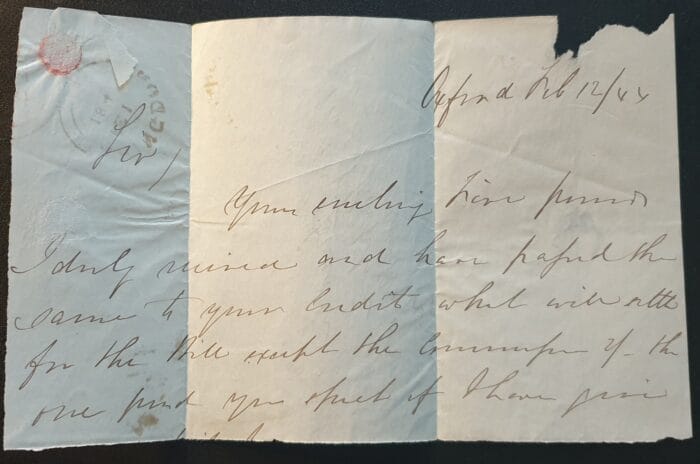 Oxford Feb 12/44
Sir,
Your enclosing Five pounds
I duly received and have passed the
same to your Credit which will settle
for the Bill except the of the
one pound you of I have